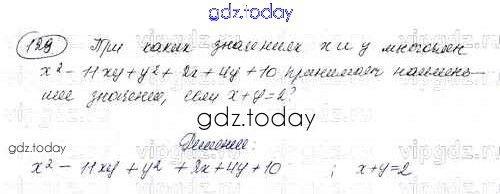 gdz.today
129 При каких значениях x и y многочлен
x² - 11xy + y² + 2x + 4y + 10 принимает наимень-
шее значение, если x+y=2?
gdz.today
Решение:
x² - 11xy + y² + 2x + 4y + 10 ; x+y=2
gdz.today